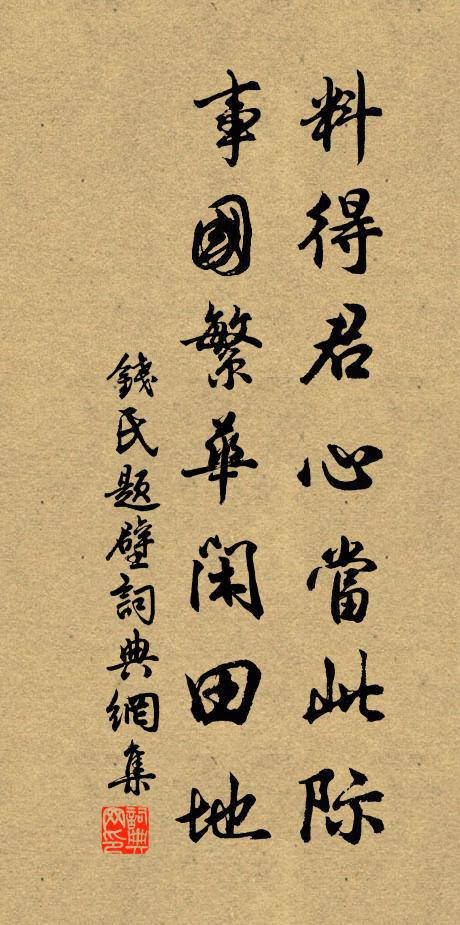 料得君心當此际
事國繁華閑田地
錢氏题壁詞典網集
詞典网印